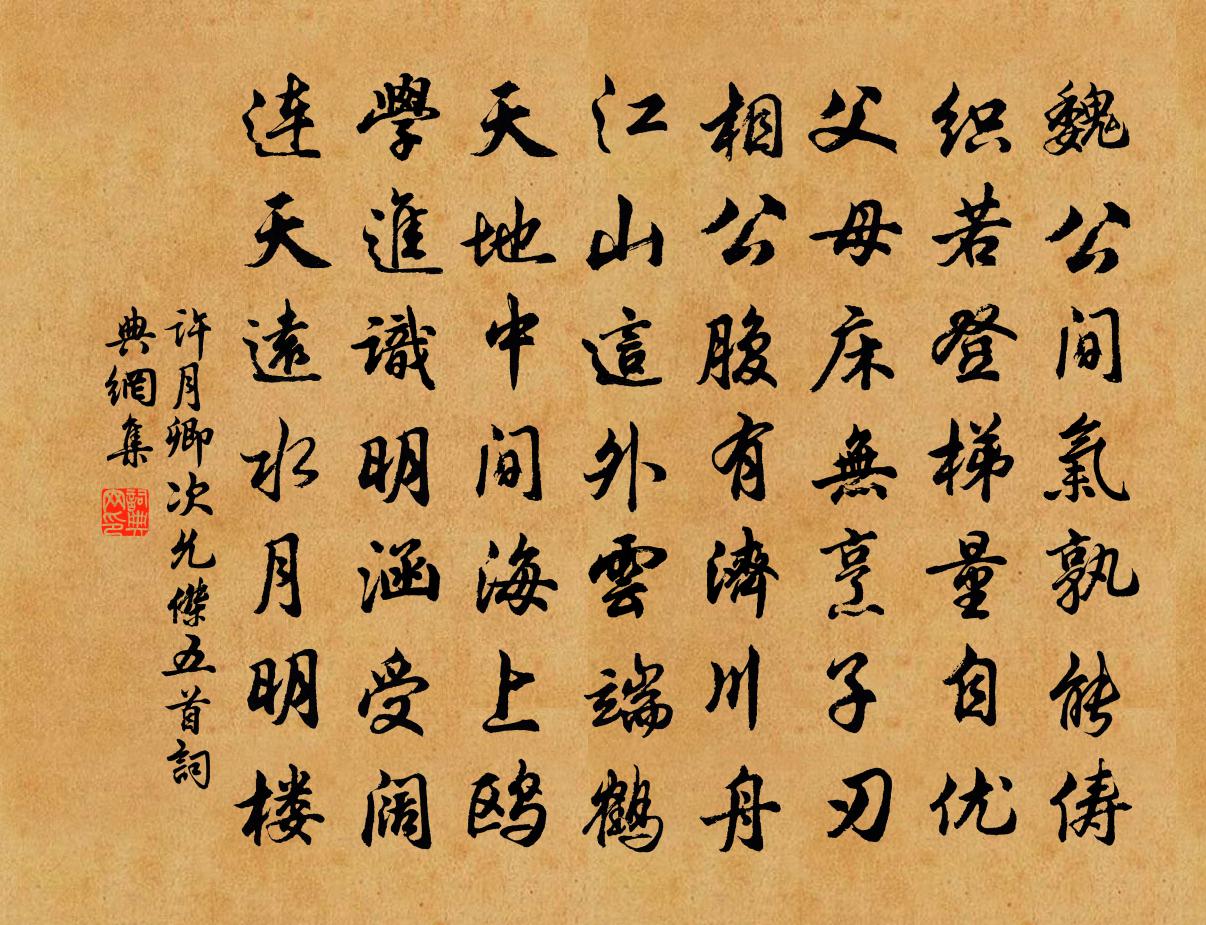 魏公间氣孰能俦
织若登梯量自优
父母床無烹子刃
相公腹有濟川舟
江山這外雲端鶴
天地中间海上鸥
學進識明涵受阔
连天遠水月明楼
許月卿次允傑五首詞
典網集
詞典网印